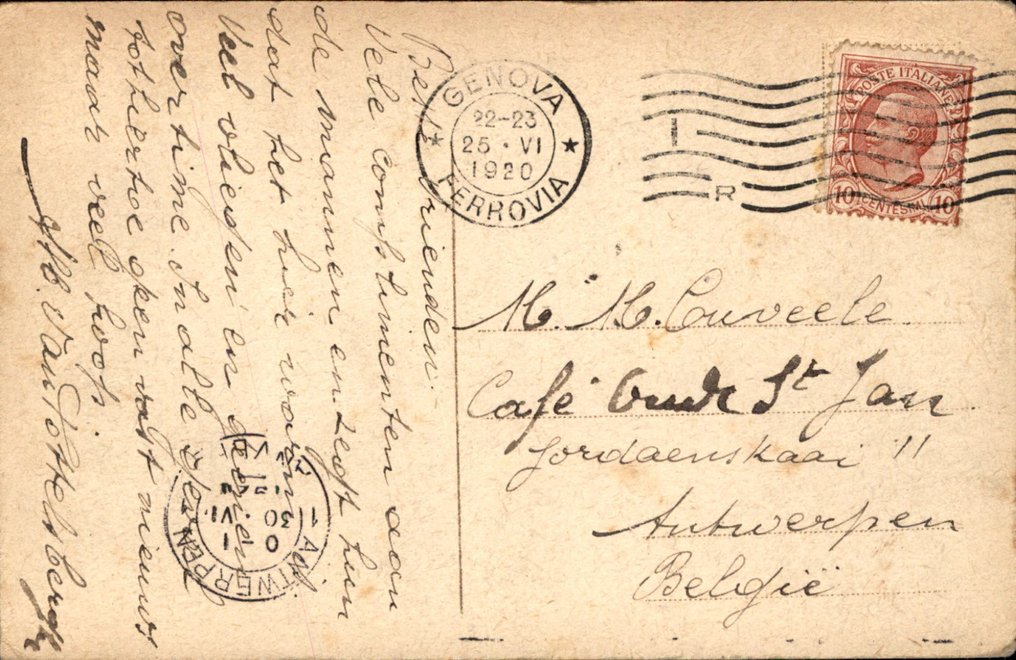 Beste Vrienden.
Vele complimenten aan
de mannen en zegt hun
dat het hier warm is
Veel vliegen en geenen
overtime. In alle geval
tothiertoe geen vast nieuws
maar veel hoop
Alb. Van
GENOVA
22-23
25 · VI
1920
FERROVIA
POSTE ITALIANE
10 CENTESIMI 10
R
M. M. Couveele
Café Oude St Jan
Jordaenskaai 11
Antwerpen
België
ANTWERPEN
1
30
VI